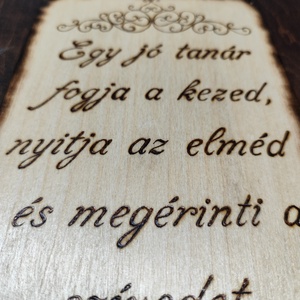 Egy jó tanár
fogja a kezed,
nyitja az elméd
és megérinti a
szívedet